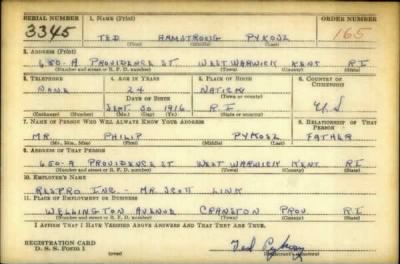 SERIAL NUMBER 1. NAME (Print) ORDER NUMBER
3345 TED ARMSTRONG PYKOSZ 165
(First) (Middle) (Last)
2. ADDRESS (Print)
650-A PROVIDENCE ST WEST WARWICK KENT RI
(Number and street or R. F. D. number) (Town) (County) (State)
3. TELEPHONE 4. AGE IN YEARS 5. PLACE OF BIRTH 6. COUNTRY OF CITIZENSHIP
NONE 24 NATICK
DATE OF BIRTH (Town or county)
SEPT. 30 1916 R I U S
(Exchange) (Number) (Mo.) (Day) (Yr.) (State or country)
7. NAME OF PERSON WHO WILL ALWAYS KNOW YOUR ADDRESS 8. RELATIONSHIP OF THAT PERSON
MR. PHILIP PYKOSZ FATHER
(Mr., Mrs., Miss) (First) (Middle) (Last)
9. ADDRESS OF THAT PERSON
650-A PROVIDENCE ST WEST WARWICK KENT RI
(Number and street or R. F. D. number) (Town) (County) (State)
10. EMPLOYER'S NAME
RESPRO INC. - MR SCOTT LINK
11. PLACE OF EMPLOYMENT OR BUSINESS
WELLINGTON AVENUE CRANSTON PROV RI
(Number and street or R. F. D. number) (Town) (County) (State)
I AFFIRM THAT I HAVE VERIFIED ABOVE ANSWERS AND THAT THEY ARE TRUE.
REGISTRATION CARD
D. S. S. Form 1 (over) Ted Pykosz
(Registrant's signature)